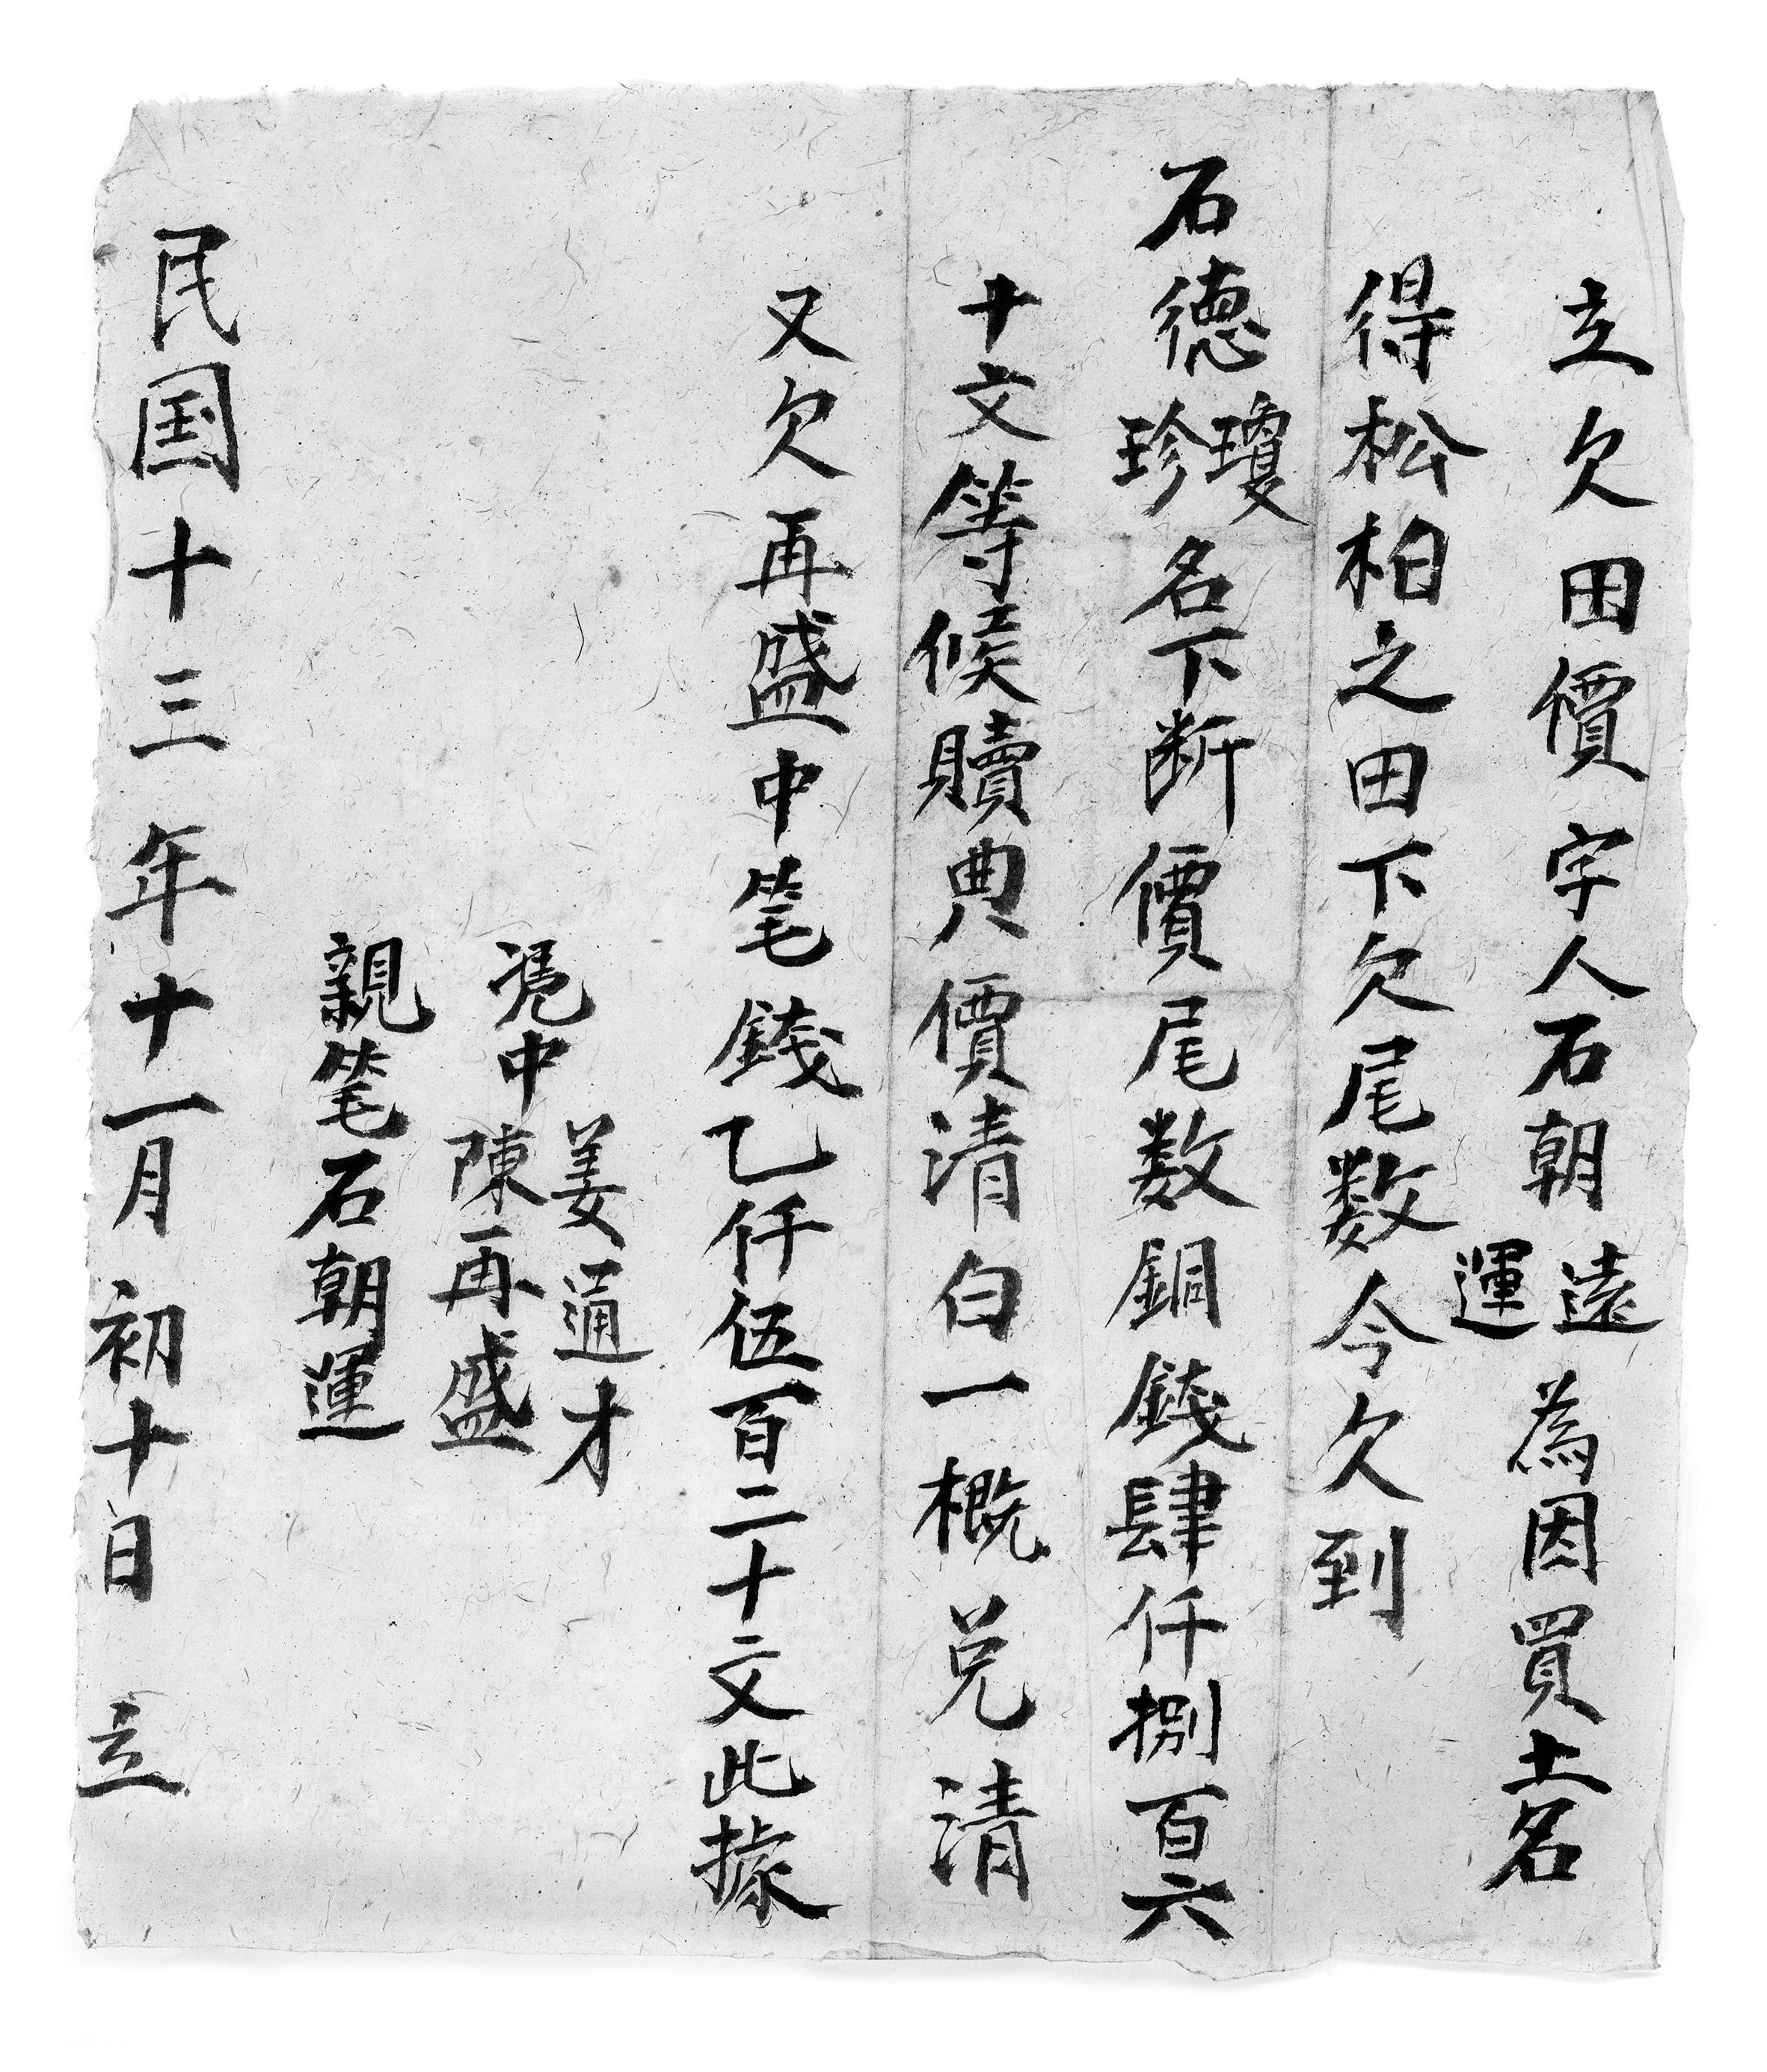 立欠田價字人石朝遠運為因買土名
得松柏之田下欠尾数今欠到
石德瓊珍名下断價尾数銅錢肆仟捌百六
十文等候贖典價清白一概兑清
又欠再盛中笔錢乙仟伍百二十文此據
憑中姜通才陳再盛
親笔石朝運
民国十三年十一月初十日 立